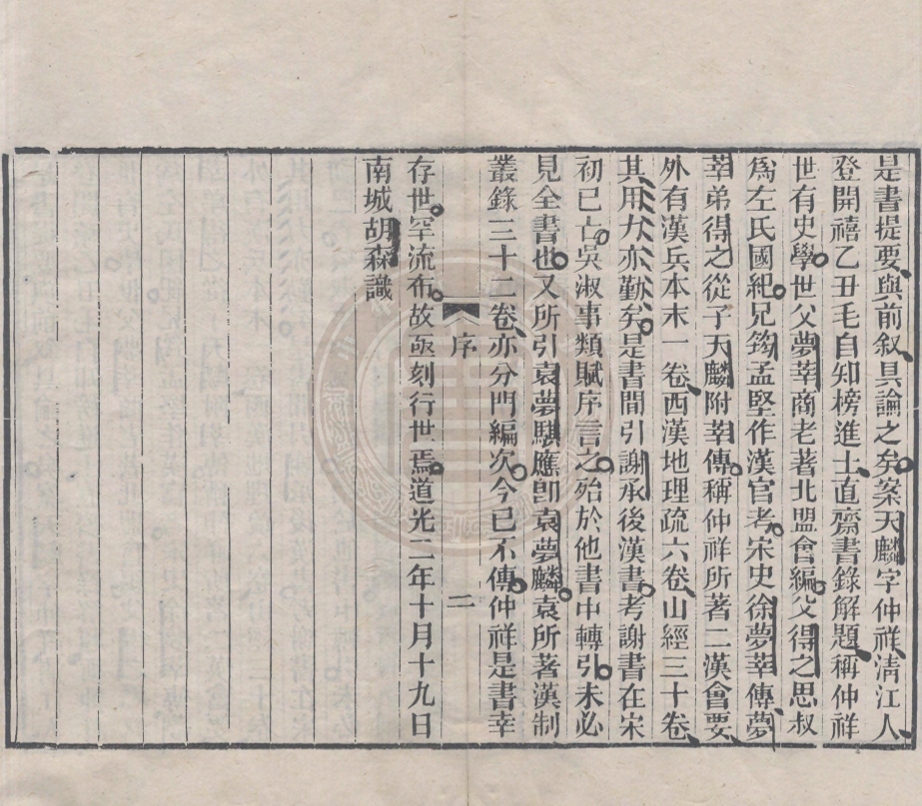 是書提要與前叙具論之矣案天麟字仲祥清江人
登開禧乙丑毛自知榜進士直齋書錄解題稱仲祥
世有史學世父夢莘商老著北盟會編父得之思叔
爲左氏國紀兄筠孟堅作漢官考宋史徐夢莘傳夢
莘弟得之從子天麟附莘傳稱仲祥所著二漢會要
外有漢兵本末一卷西漢地理疏六卷山經三十卷
其用力亦勤矣是書閒引謝承後漢書考謝書在宋
初已亡吳淑事類賦序言之殆於他書中轉引未必
見全書也又所引袁夢騏應卽袁夢麟袁所著漢制
叢錄三十二卷亦分門編次今已不傳仲祥是書幸
序 二
存世罕流布故亟刻行世焉道光二年十月十九日
南城胡森識